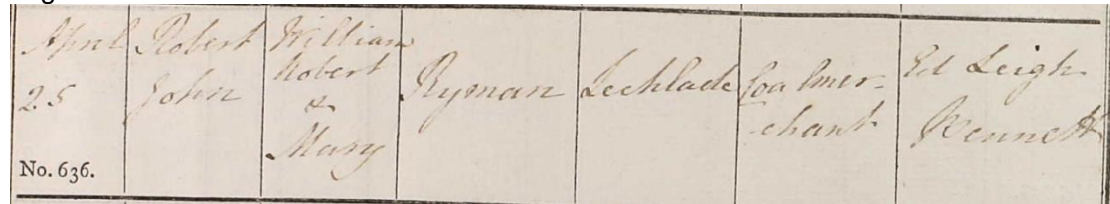 April
25
No. 636.
Robert
John
William
Robert
&
Mary
Ryman
Lechlade
Coalmer-
-chant
Ed Leigh
Bennett